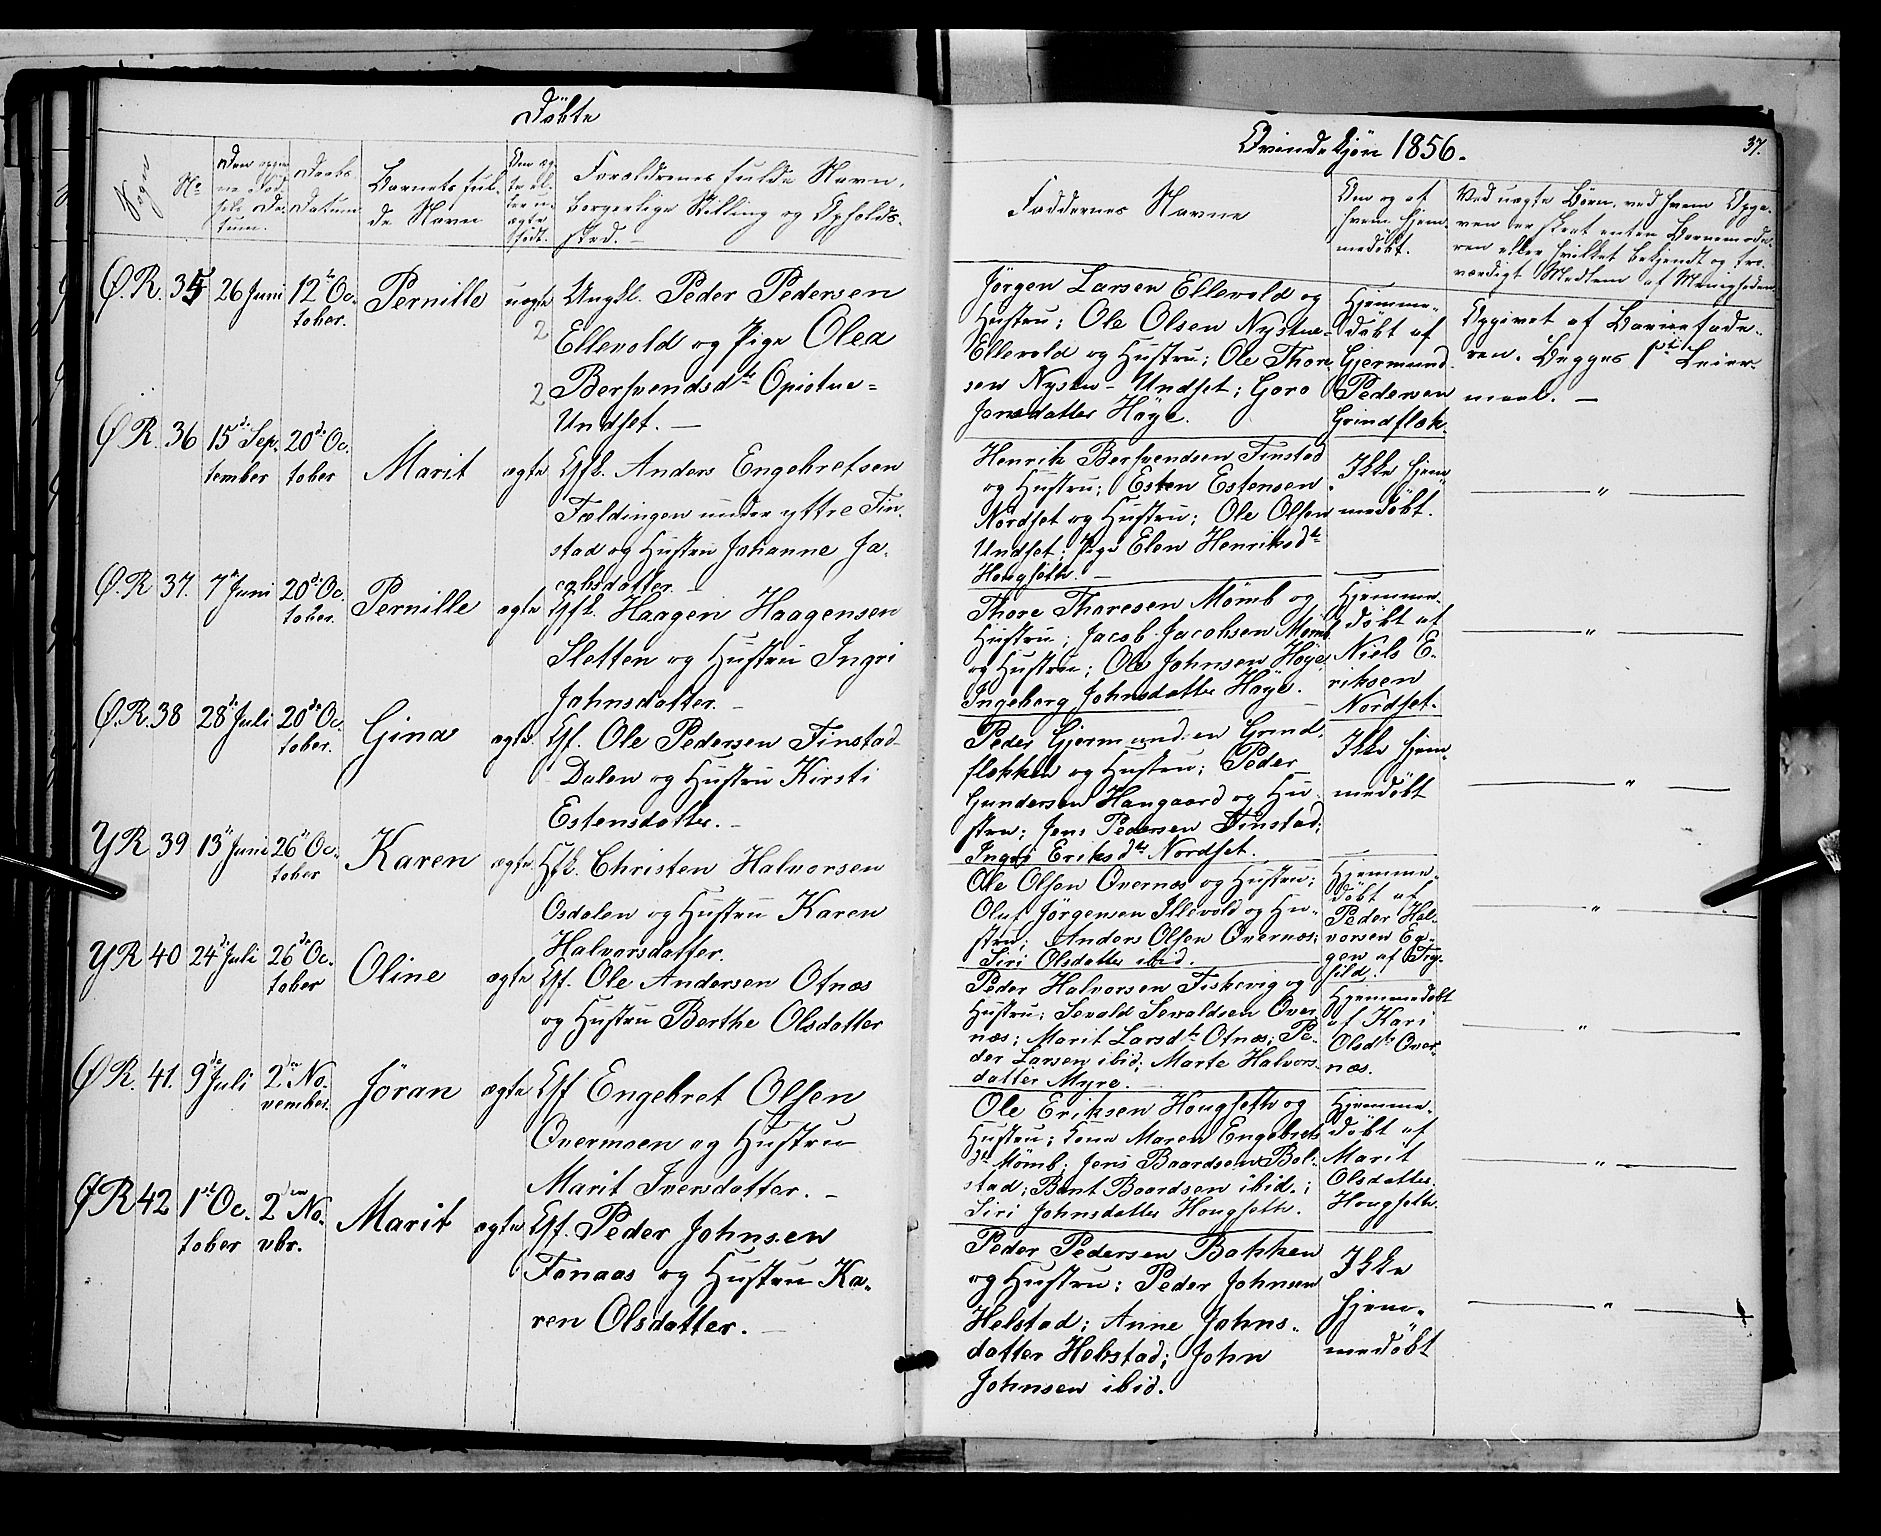 Döbte
Qvindekjön 1856.
37.
Sogn
No
Den opgiv-
ne Fød-
sels Da-
tum.
Daabs
Datum
Barnets ful-
de Navn
Om æg-
te el-
ler u-
ægte
født.
Forældrenes fulde Navn,
borgerlige Stilling og Opholds-
sted. -
Faddernes Navne
Om og af
hvem hjem-
medøbt.
Ved uægte Børn, ved hvem Opga-
ven er skeet enten Barnemode-
ren eller hvilket bekjendt og tro-
værdigt Medlem af Menigheden
Ø. R. 35 26 Juni 12te Oc-
tober.
Pernille
uægte
2
2
Ungkl. Peder Pedersen
Ellevold og Pige Olea
Bersvendsdtr Opistue=
Undset. -
Jörgen Larsen Ellevold og
Hustru; Ole Olsen Nystue-
Ellevold og Hustru; Ole Thore
sen Nysen - Undset; Goro
Jonsdatter Höye.
Hjemme-
döbt af
Gjermund
Pedersen
Grindflæk.
Opgivet af Barnefade-
ren. Begges 1ste Leier-
maal. -
Ø R. 36 15de Sep-
tember
20de Oc.
tober
Marit
ægte
Gfb. Anders Engebretsen
Fældingen under yttre Fin-
stad og Hustru Johanne Ja-
cobsdatter. -
Henrik Bersvendsen Finstad
og Hustru; Esten Estensen
Nordset og Hustru; Ole Olsen
Undset; Pige Elen Henriksdtr
Hougseth. -
Ikke hjem-
medöbt.
"
Ø. R 37. 7de Juni 20de Oc.
tober.
Pernille
ægte
Gfb. Haagen Haagensen
Sletten og Hustru Ingri
Johnsdatter. -
Thore Thoresen Mömb og
Hustru; Jacob Jacobsen Mömb
og Hustru; Ole Johnsen Höye
Ingeborg Johnsdatter Höye. -
Hjemme-
döbt af
Niels E-
riksen
Nordset.
"
Ø. R. 38 28de Juli 20de Oc.
tober.
Gina
ægte.
Gf. Ole Pedersen Finstad-
Dalen og Hustru Kirsti
Estensdatter. -
Peder Gjermundsen Grind-
flækken og Hustru; Peder
Gundersen Haugaard og Hu-
stru; Jens Pedersen Finstad;
Ingri Eriksdtr Nordset.
Ikke hjem-
medöbt
"
Y R 39 13de Juni 26de Oc-
tober
Karen
ægte
Hfb. Christen Halvorsen
Osdalen og Hustru Karen
Halvorsdatter.
Ole Olsen Övernæs og Hustru;
Oluf Jörgensen Illevold og Hu-
stru; Anders Olsen Övernæs;
Siri Olsdatter ibid.
Hjemme-
döbt af
Peder Hal-
vorsen Eg-
gen af Try-
sild.
"
Y R 40 24de Juli 26de Oc.
tober
Oline
ægte
Gf. Ole Andersen Otnæs
og Hustru Berthe Olsdatter
Peder Halvorsen Fiskevig og
Hustru; Sevald Sevaldsen Över-
næs; Marit Larsdtr Otnæs; Pe-
der Larsen ibid; Marte Halvors-
datter Myre. -
Hjemmedöbt
af Kari
Olsdtr Över-
næs.
"
Ø R. 41. 9de Juli 2den No-
vember.
Jöran
ægte
Gf Engebret Olsen
Övermoen og Hustru
Marit Iversdatter. -
Ole Eriksen Hougseth og
Hustru; Kone Maren Engebrets
dtr Mömb; Jens Baardsen Bol-
stad; Bent Baardsen ibid.;
Siri Johnsdatter Hougseth.
Hjemme-
döbt af
Marit
Olsdatter
Hougseth.
"
Ø R 42 1ste Oc.
tober
2den No-
vbr.
Marit
ægte
Gf. Peder Johnsen
Fonaas og Hustru Ka-
ren Olsdatter. -
Peder Pedersen Bakken
og Hustru; Peder Johnsen
Helstad; Anne Johns-
datter Helstad; John
Johnsen ibid.
Ikke
hjem-
medöbt
"